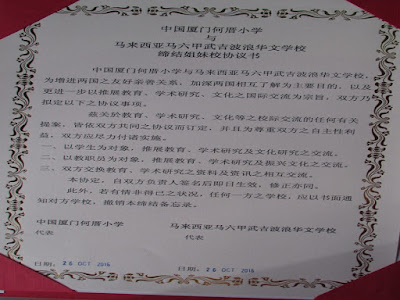 中国厦门何厝小学
与
马来西亚马六甲武吉波浪华文学校
缔结姐妹校协议书
中国厦门何厝小学与马来西亚马六甲武吉波浪华文学校,
为增进两国之友好亲善关系、加深两国相互了解为主要目的,以及
更进一步以推展教育、学术研究、文化之国际交流为宗旨,双方乃
拟定以下之协议事项。
兹关於教育、学术研究、文化等之校际交流的任何有关
提案,皆依双方共同之协议而订定,并且为尊重双方之自主性利
益,双方应尽力付诸实施。
一、以学生为对象,推展教育、学术研究及文化研究之交流。
二、以教职员为对象,推展教育、学术研究及振兴文化之交流。
三、双方交换教育、学术研究之资料及资讯之相互交流。
本协定,自双方负责人签名后即日生效,修正亦同。
此外,若有情非得已之状况,任何一方之学校,应以书面通
知对方学校,撤销本缔结备忘录。
中国厦门何厝小学 马来西亚马六甲武吉波浪华文学校
代表 代表
日期: 26 OCT 2016 日期: 26 OCT 2016